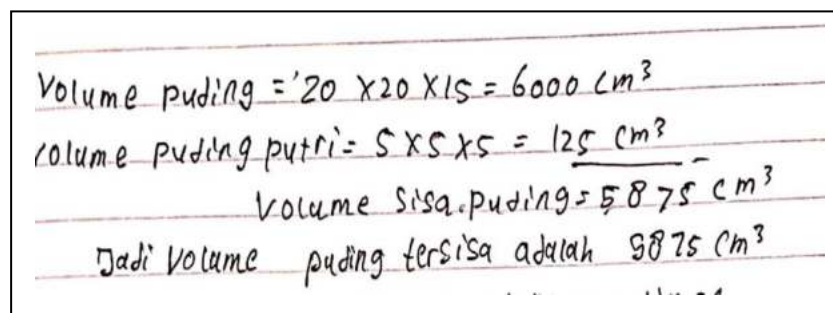 Volume puding = 20 X 20 X 15 = 6000 cm³
volume puding putri = 5 X 5 X 5 = 125 cm³
Volume sisa puding = 5875 cm³
Jadi Volume puding tersisa adalah 5875 cm³